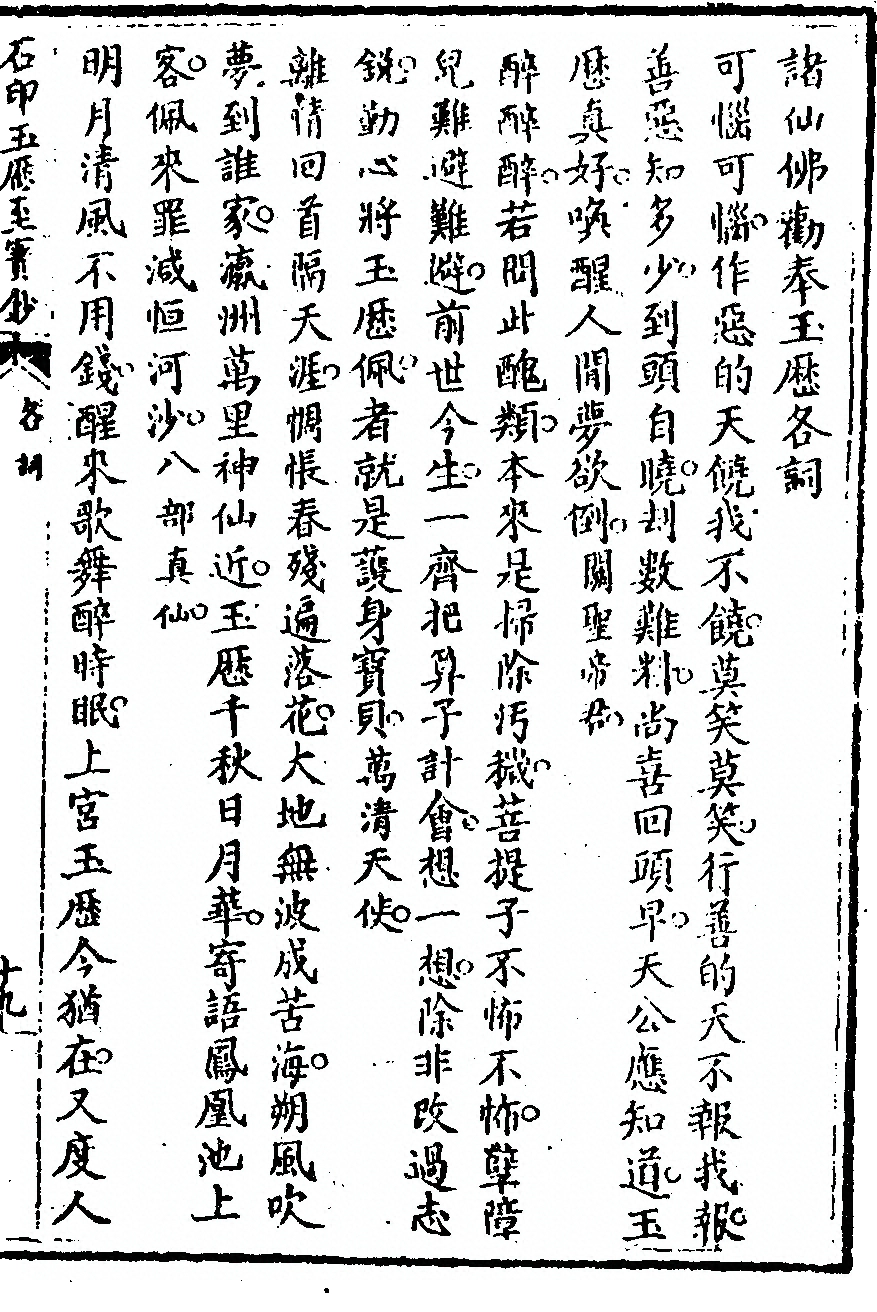 諸仙佛勸奉玉歷各詞
可惱可惱。作惡的天饒我不饒。莫笑莫笑。行善的天不報我報。
善惡知多少。到頭自曉。刦數難料。尚喜回頭早。天公應知道。玉
歷真好。喚醒人間夢欲倒。關聖帝君。
醉醉醉。若問此醜類。本來是掃除污穢。菩提子不怖不怖。孽障
兒難避難避。前世今生。一齊把算子計會。想一想。除非改過志
銳。勤心將玉歷佩。者就是護身寶貝。萬清天使。
離情回首隔天涯。惆悵春殘遍落花。大地無波成苦海。朔風吹
夢到誰家。瀛洲萬里神仙近。玉歷千秋日月華。寄語鳳凰池上
客。佩來罪減恒河沙。八部真仙。
明月清風不用錢。醒來歌舞醉時眠。上宮玉歷今猶在。又度人
石印玉歷至寶鈔 各詞 十九